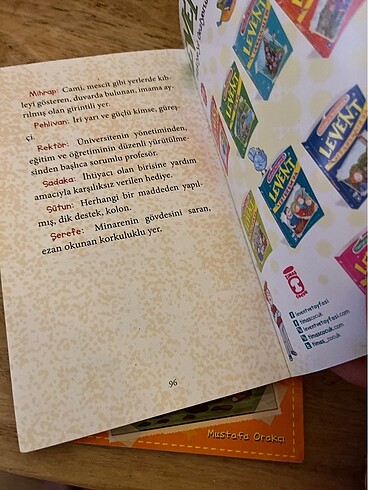 Mihrap: Cami, mescit gibi yerlerde kıb-
leyi gösteren, duvarda bulunan, imama ay-
rılmış olan girintili yer.
Pehlivan: İri yarı ve güçlü kimse, güreş-
çi.
Rektör: Üniversitenin yönetiminden,
eğitim ve öğretiminin düzenli yürütülme-
sinden başlıca sorumlu profesör.
Sadaka: İhtiyacı olan birisine yardım
amacıyla karşılıksız verilen hediye.
Sütun: Herhangi bir maddeden yapıl-
mış, dik destek, kolon.
Şerefe: Minarenin gövdesini saran,
ezan okunan korkuluklu yer.
96
LEVENT
LEVENT
LEVENT
LEVENT
timaş
çocuk
leventvetayfasi
timascocuk
leventvetayfasi.com
timascocuk.com
timas_cocuk
Mustafa Orakçı